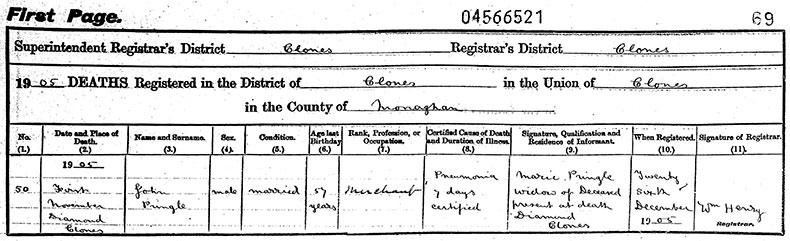 First Page. 04566521 69
Superintendent Registrar's District Clones Registrar's District Clones
1905 DEATHS Registered in the District of Clones in the Union of Clones
in the County of Monaghan
No. Date and Place of Death. Name and Surname. Sex. Condition. Age last Birthday Rank, Profession, or Occupation. Certified Cause of Death and Duration of Illness. Signature, Qualification and Residence of Informant. When Registered. Signature of Registrar.
(1.) (2.) (3.) (4.) (5.) (6.) (7.) (8.) (9.) (10.) (11.)
1905 Pneumonia Marie Pringle Twenty
50 First John male married 57 Merchant 7 days widow of Deceased Sixth
November Pringle years certified present at death December Wm Henry
Diamond Diamond 1905 Registrar.
Clones Clones